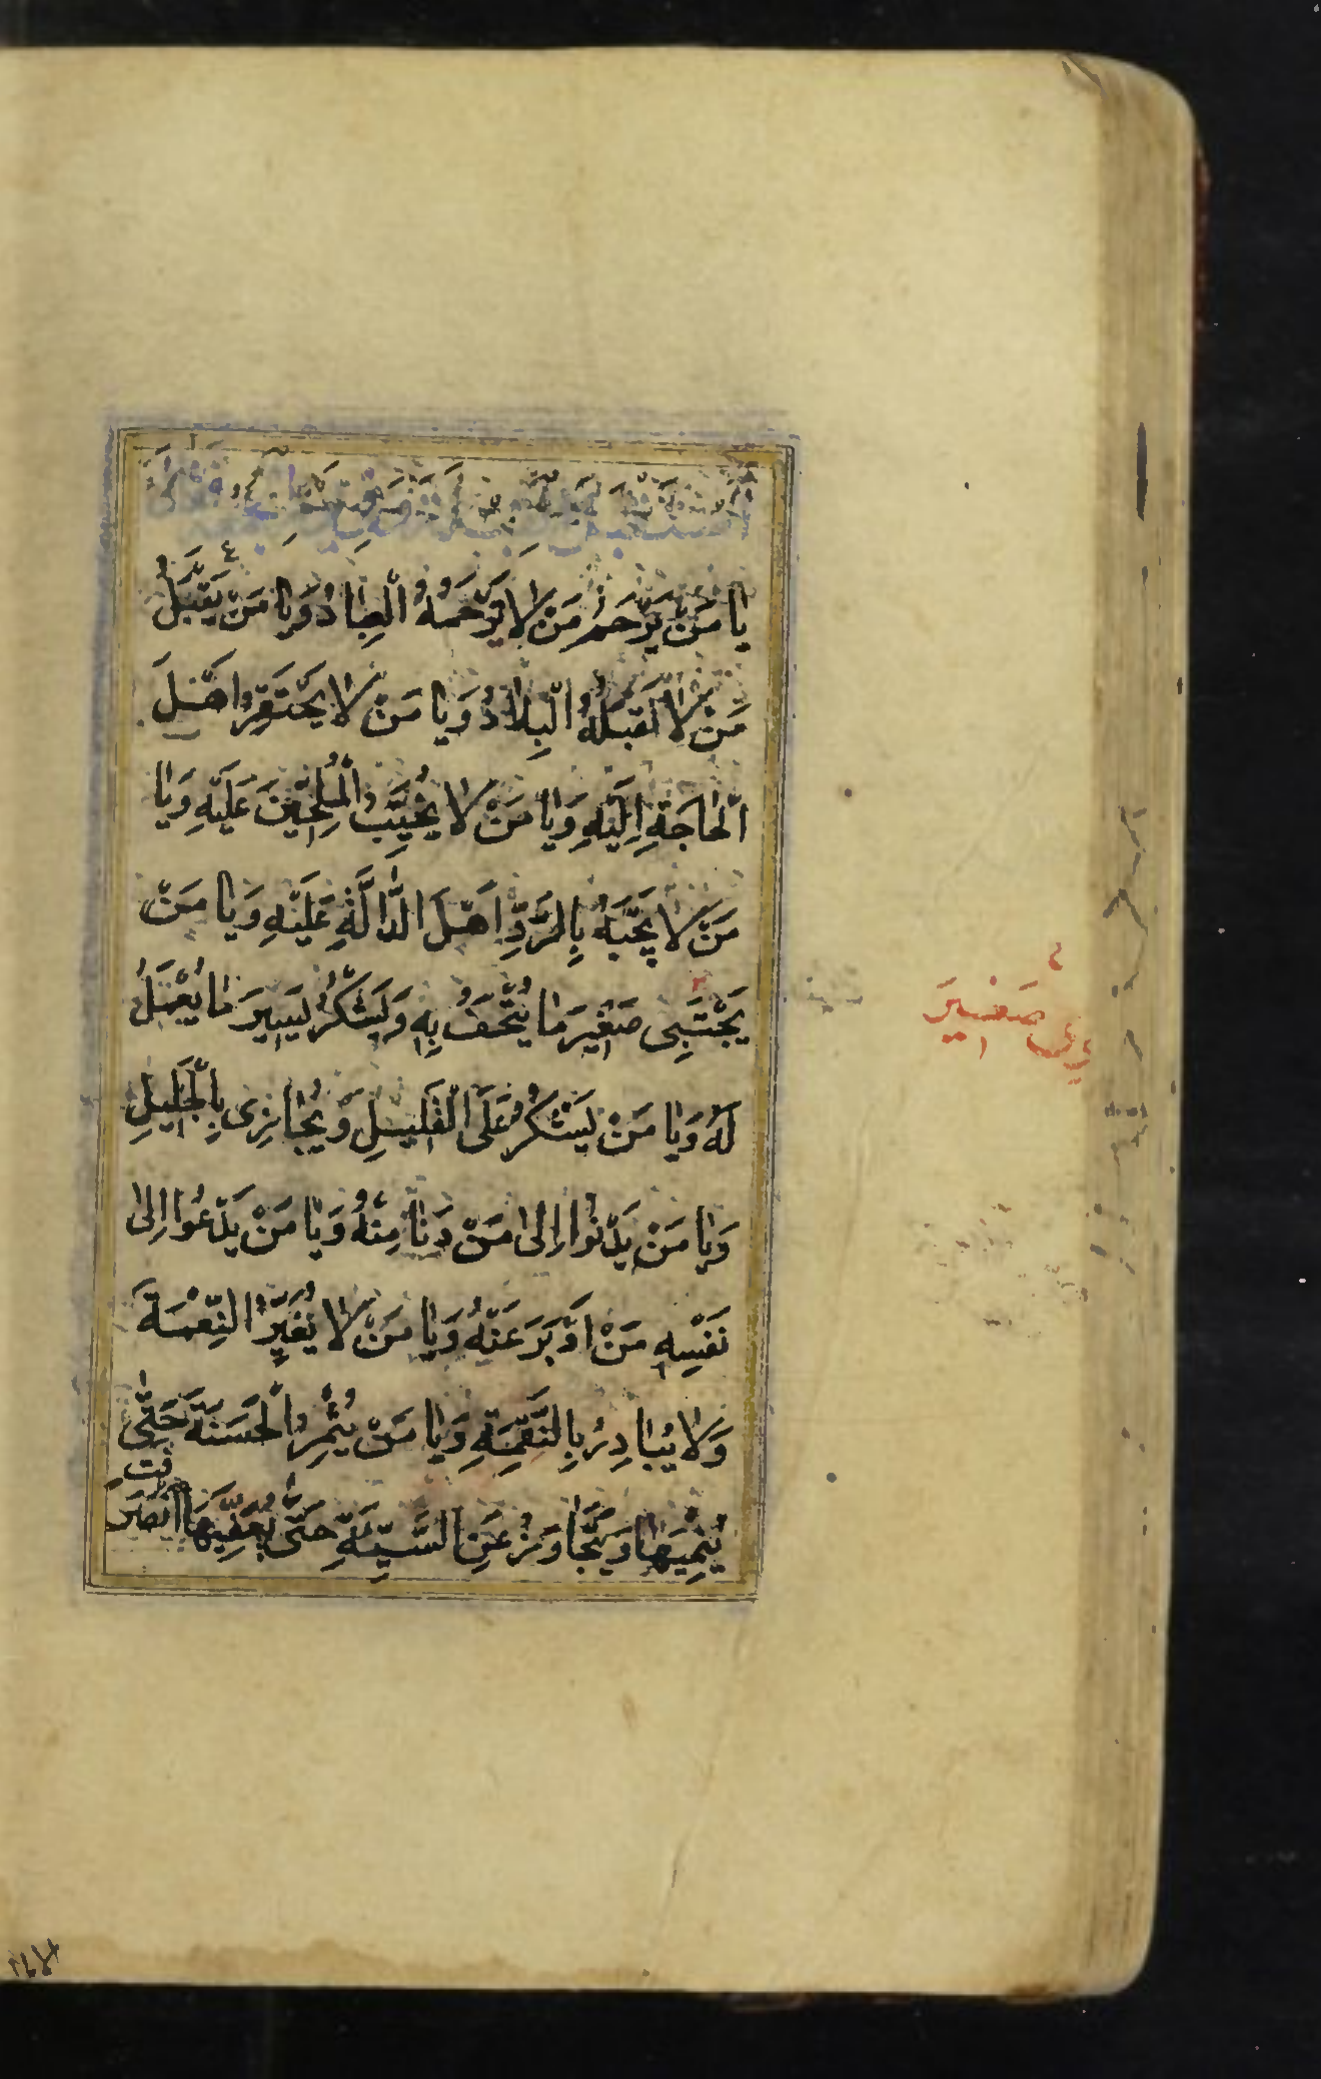 يَا مَنْ يَرْحَمُ مَنْ لَا يَرْحَمُهُ الْعِبَادُ وَيَا مَنْ يَقْبَلُ
مَنْ لَا تَقْبَلُهُ الْبِلَادُ وَيَا مَنْ لَا يَحْتَقِرُ اَهْلَ
الْحَاجَةِ اِلَيْهِ وَيَا مَنْ لَا يُخَيِّبُ الْمُلِحِّينَ عَلَيْهِ وَيَا
مَنْ لَا يَجْبَهُ بِالرَّدِّ اَهْلَ الدَّالَّةِ عَلَيْهِ وَيَا مَنْ
يَجْتَبِى صَغِيرَ مَا يُتْحَفُ بِهِ وَيَشْكُرُ يَسِيرَ مَا يُعْمَلُ
لَهُ وَيَا مَنْ يَشْكُرُ عَلَى الْقَلِيلِ وَيُجَازِى بِالْجَلِيلِ
وَيَا مَنْ يَدْنُوا اِلَىٰ مَنْ دَنَا مِنْهُ وَيَا مَنْ يَدْعُوا اِلَىٰ
نَفْسِهِ مَنْ اَدْبَرَ عَنْهُ وَيَا مَنْ لَا يُغَيِّرُ النِّعْمَةَ
وَلَا يُبَادِرُ بِالنَّقِمَةِ وَيَا مَنْ يُثْمِرُ الْحَسَنَةَ حَتَّىٰ
يُنْمِيَهَا وَيَتَجَاوَزُ عَنِ السَّيِّئَةِ حَتَّىٰ يُعَفِّيَهَا انْصَرَفَت
صَغِيرَ